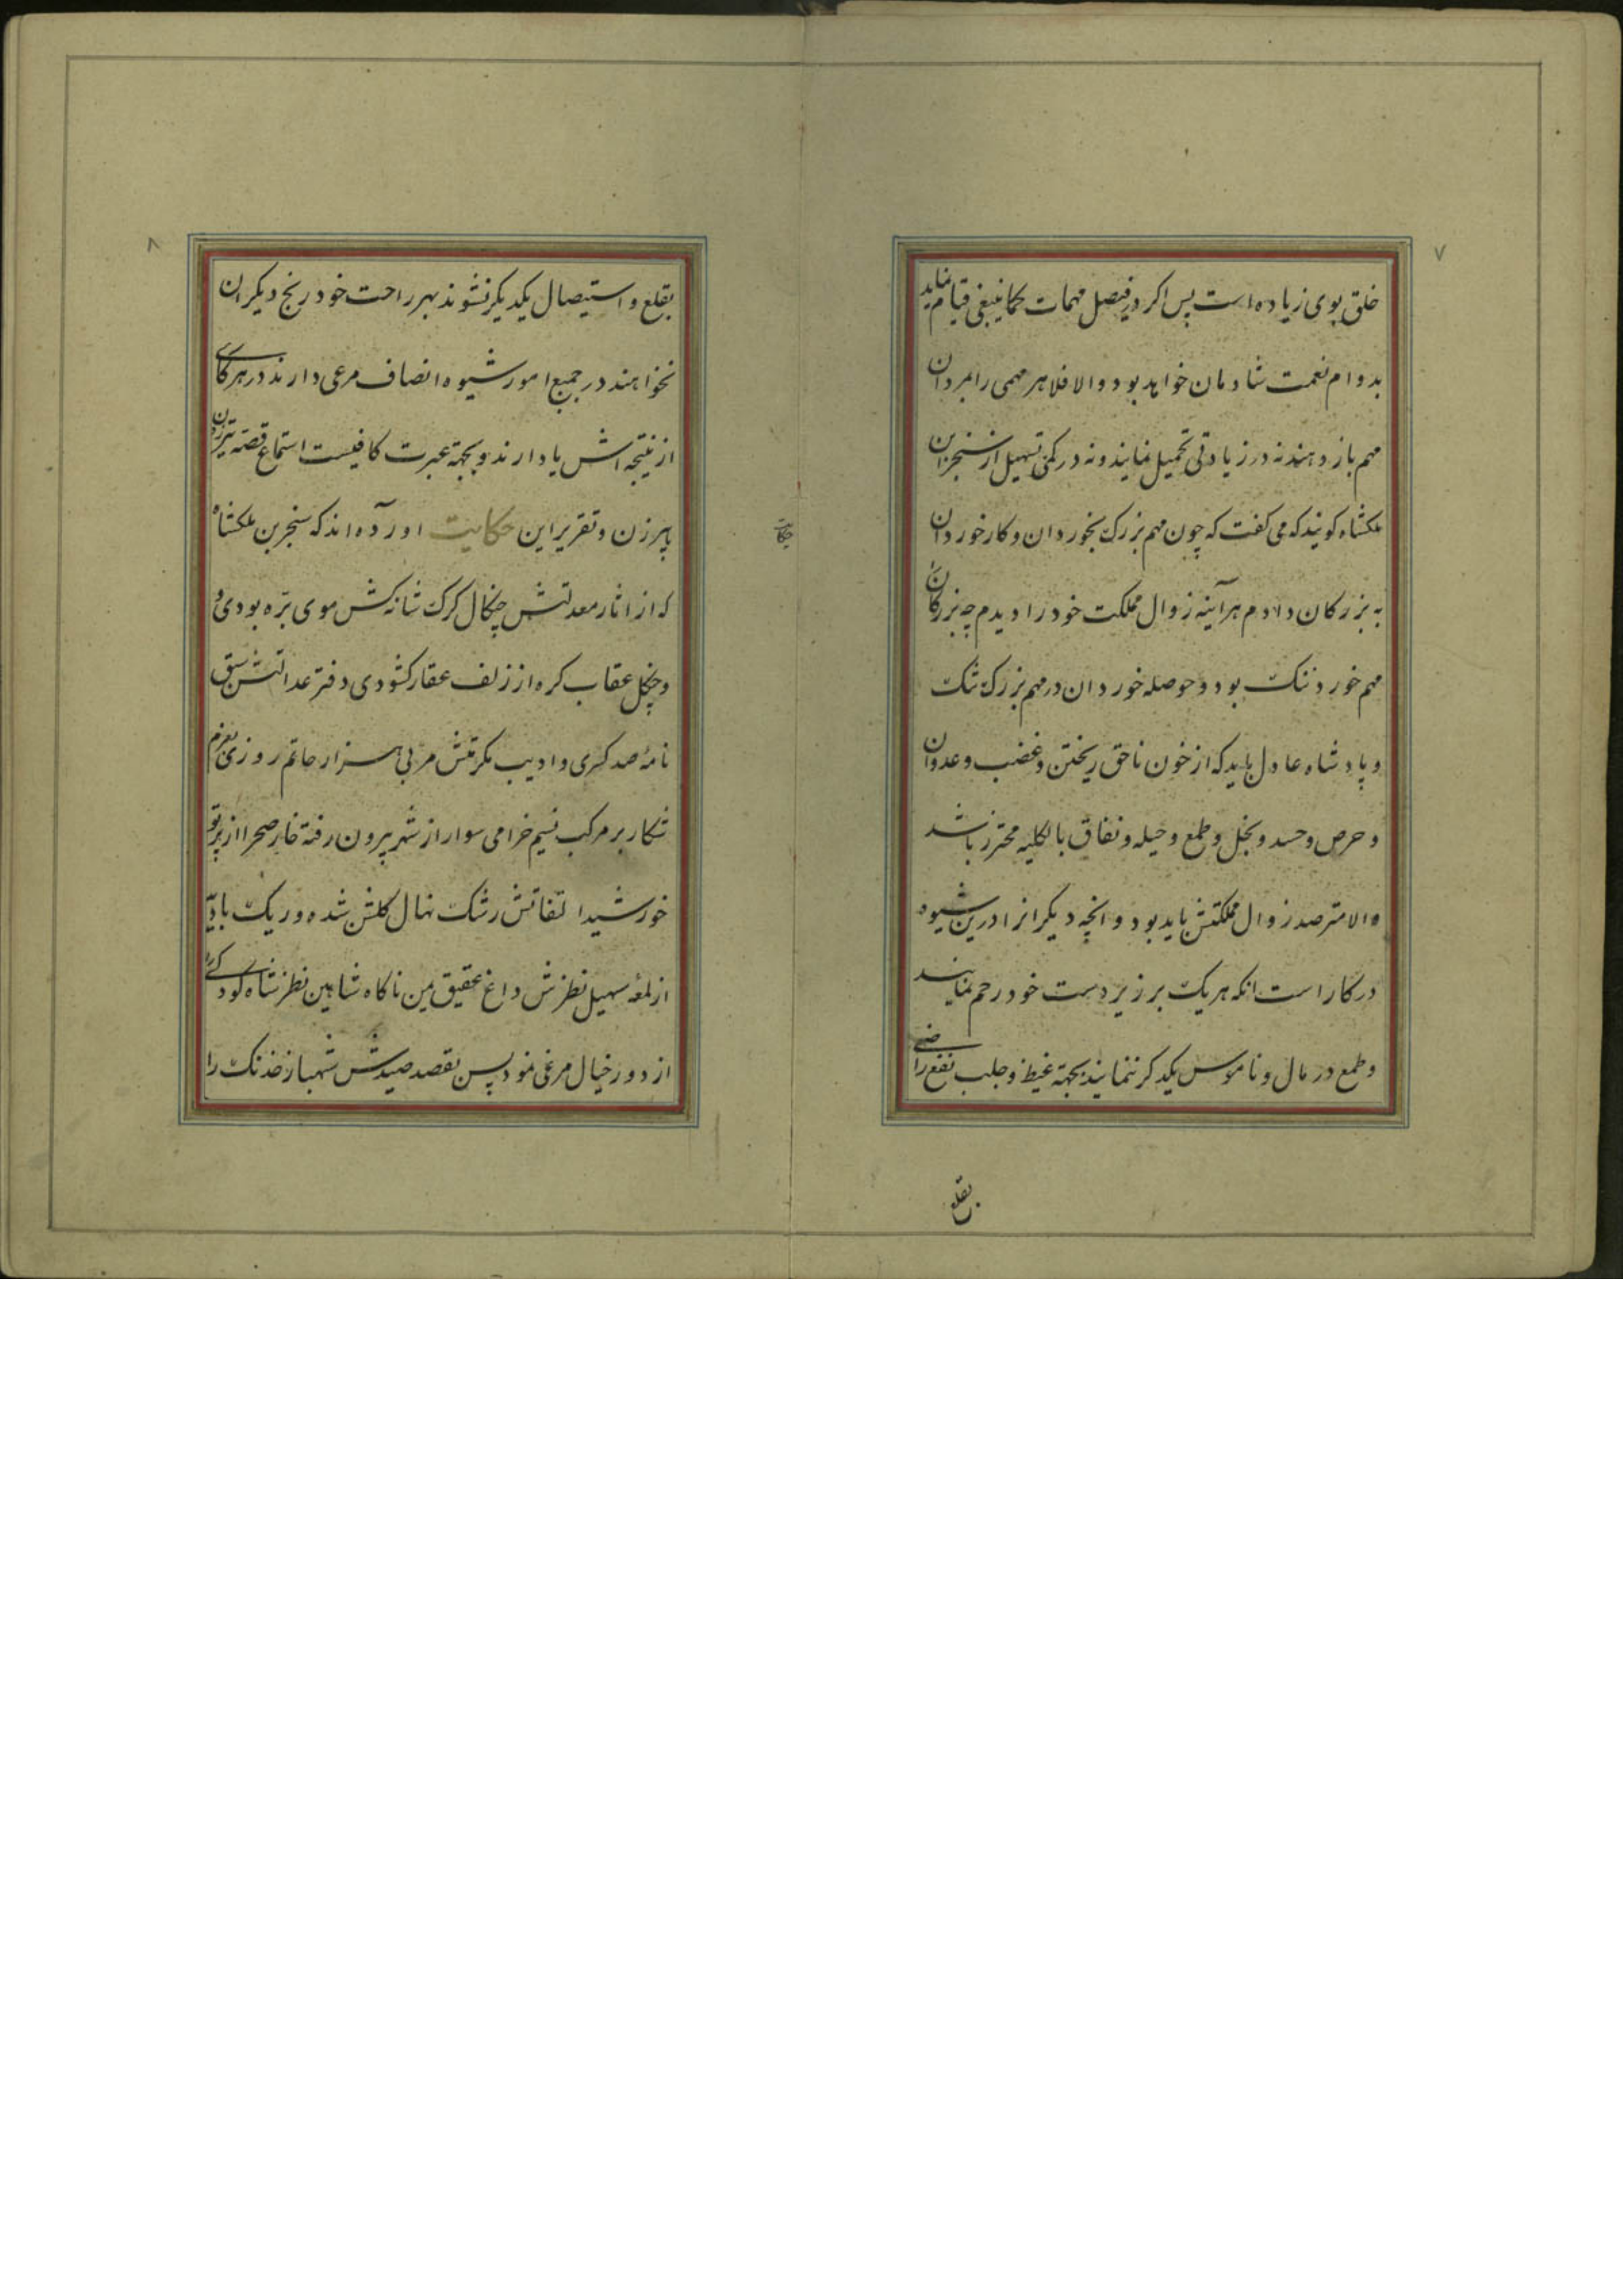 ۷
خلق بوی زیاده است پس اکر در فیصل مهمات کماینبغی قیام نماید
بدوام نعمت شادمان خواهد بود والا فلا هر مهمی را بمردان
مهم باز دهند نه در زیادتی تحمیل نمایند و نه در کمی تسهیل از سنجر بن
ملکشاه کویند که می کفت که چون مهم بزرک بخوردان و کار خوردان
به بزرکان دادم هرآینه زوال مملکت خود را دیدم چه بزرکان را
مهم خورد ننک بود و حوصله خوردان در مهم بزرک تنک
و پادشاه عادل باید که از خون ناحق ریختن و غضب و عدوان
و حرص و حسد و بخل و طمع و حیله و نفاق بالکلیه محترز باشد
والا مترصد زوال مملکتش باید بود و انچه دیکرانرا درین شیوه
در کار است انکه هر یک بر زیر دست خود رحم نمایند
و طمع در مال و ناموس یکدکر ننمایند بجهته غیظ و جلب نفع راضی
بقلع
۸
بقلع و استیصال یکدیکر نشوند بهر راحت خود رنج دیکران
نخواهند در جمیع امور شیوه انصاف مرعی دارند در هر کاری
از نتیجه اش یاد ارند و بجهته عبرت کافیست استماع قصه تیر زدن
پیرزن و تقریر این حکایت اورآده اند که سنجر بن ملکشاه
حکایت
که از اثار معدلتش چنکال کرک شانه کش موی بره بودی و
و چنکل عقاب کره از زلف عقار کشودی دفتر عدالتش سبق
نامهٔ صد کسری و ادیب مکرمتش مربی هزار حاتم روزی بعزم
شکار بر مرکب نسیم خرامی سوار از شهر بیرون رفته خار صحرا از پرتو
خورشید التفاتش رشک نهال کلشن شده و ریک بادیه
از لمعه سهیل نظرش داغ عقیق یمن ناکاه شاهین نظر شاه کودکی را
از دور خیال مرغی نمود پس بقصد صیدش شهباز خدنک را